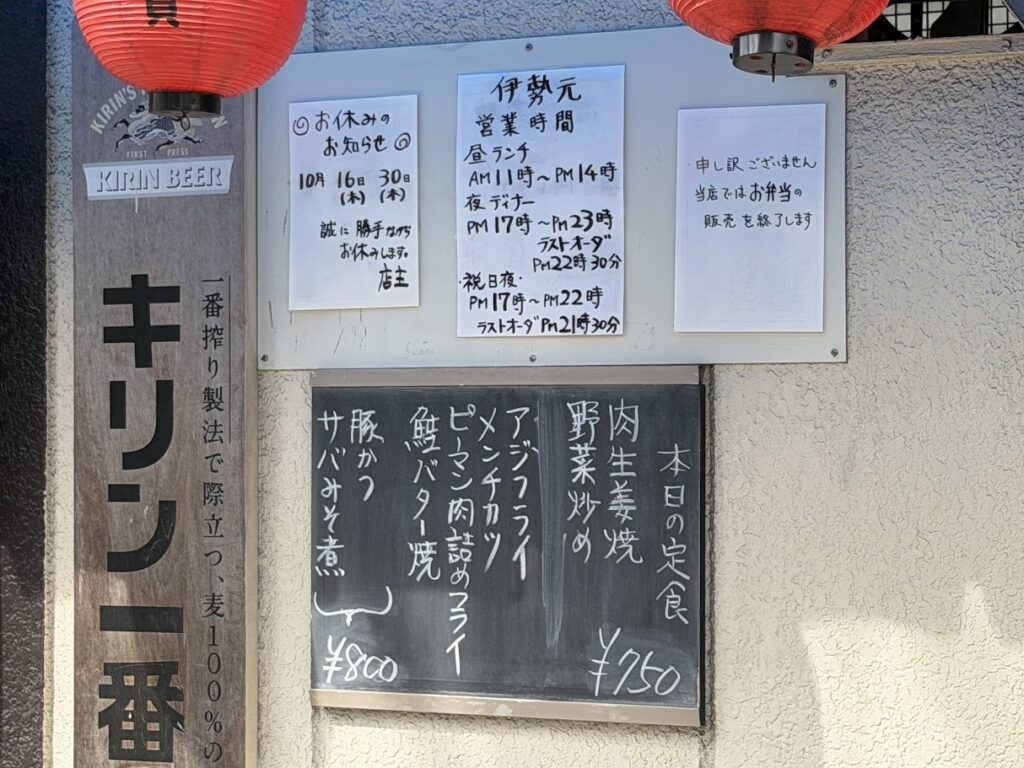 KIRIN'S
FIRST PRESS
KIRIN BEER
キリン一番
一番搾り製法で際立つ、麦100%の
お休みの
お知らせ
10月 16日 30日
(木) (木)
誠に勝手ながら
お休みします。
店主
伊勢元
営業時間
昼ランチ
AM11時〜PM14時
夜ディナー
PM17時〜PM23時
ラストオーダ
PM22時30分
・祝日夜・
PM17時〜PM22時
ラストオーダPM21時30分
申し訳ございません
当店ではお弁当の
販売を終了します
本日の定食
肉生姜焼
野菜炒め
¥750
アジフライ
メンチカツ
ピーマン肉詰めフライ
鮭バター焼
豚かつ
サバみそ煮
¥800